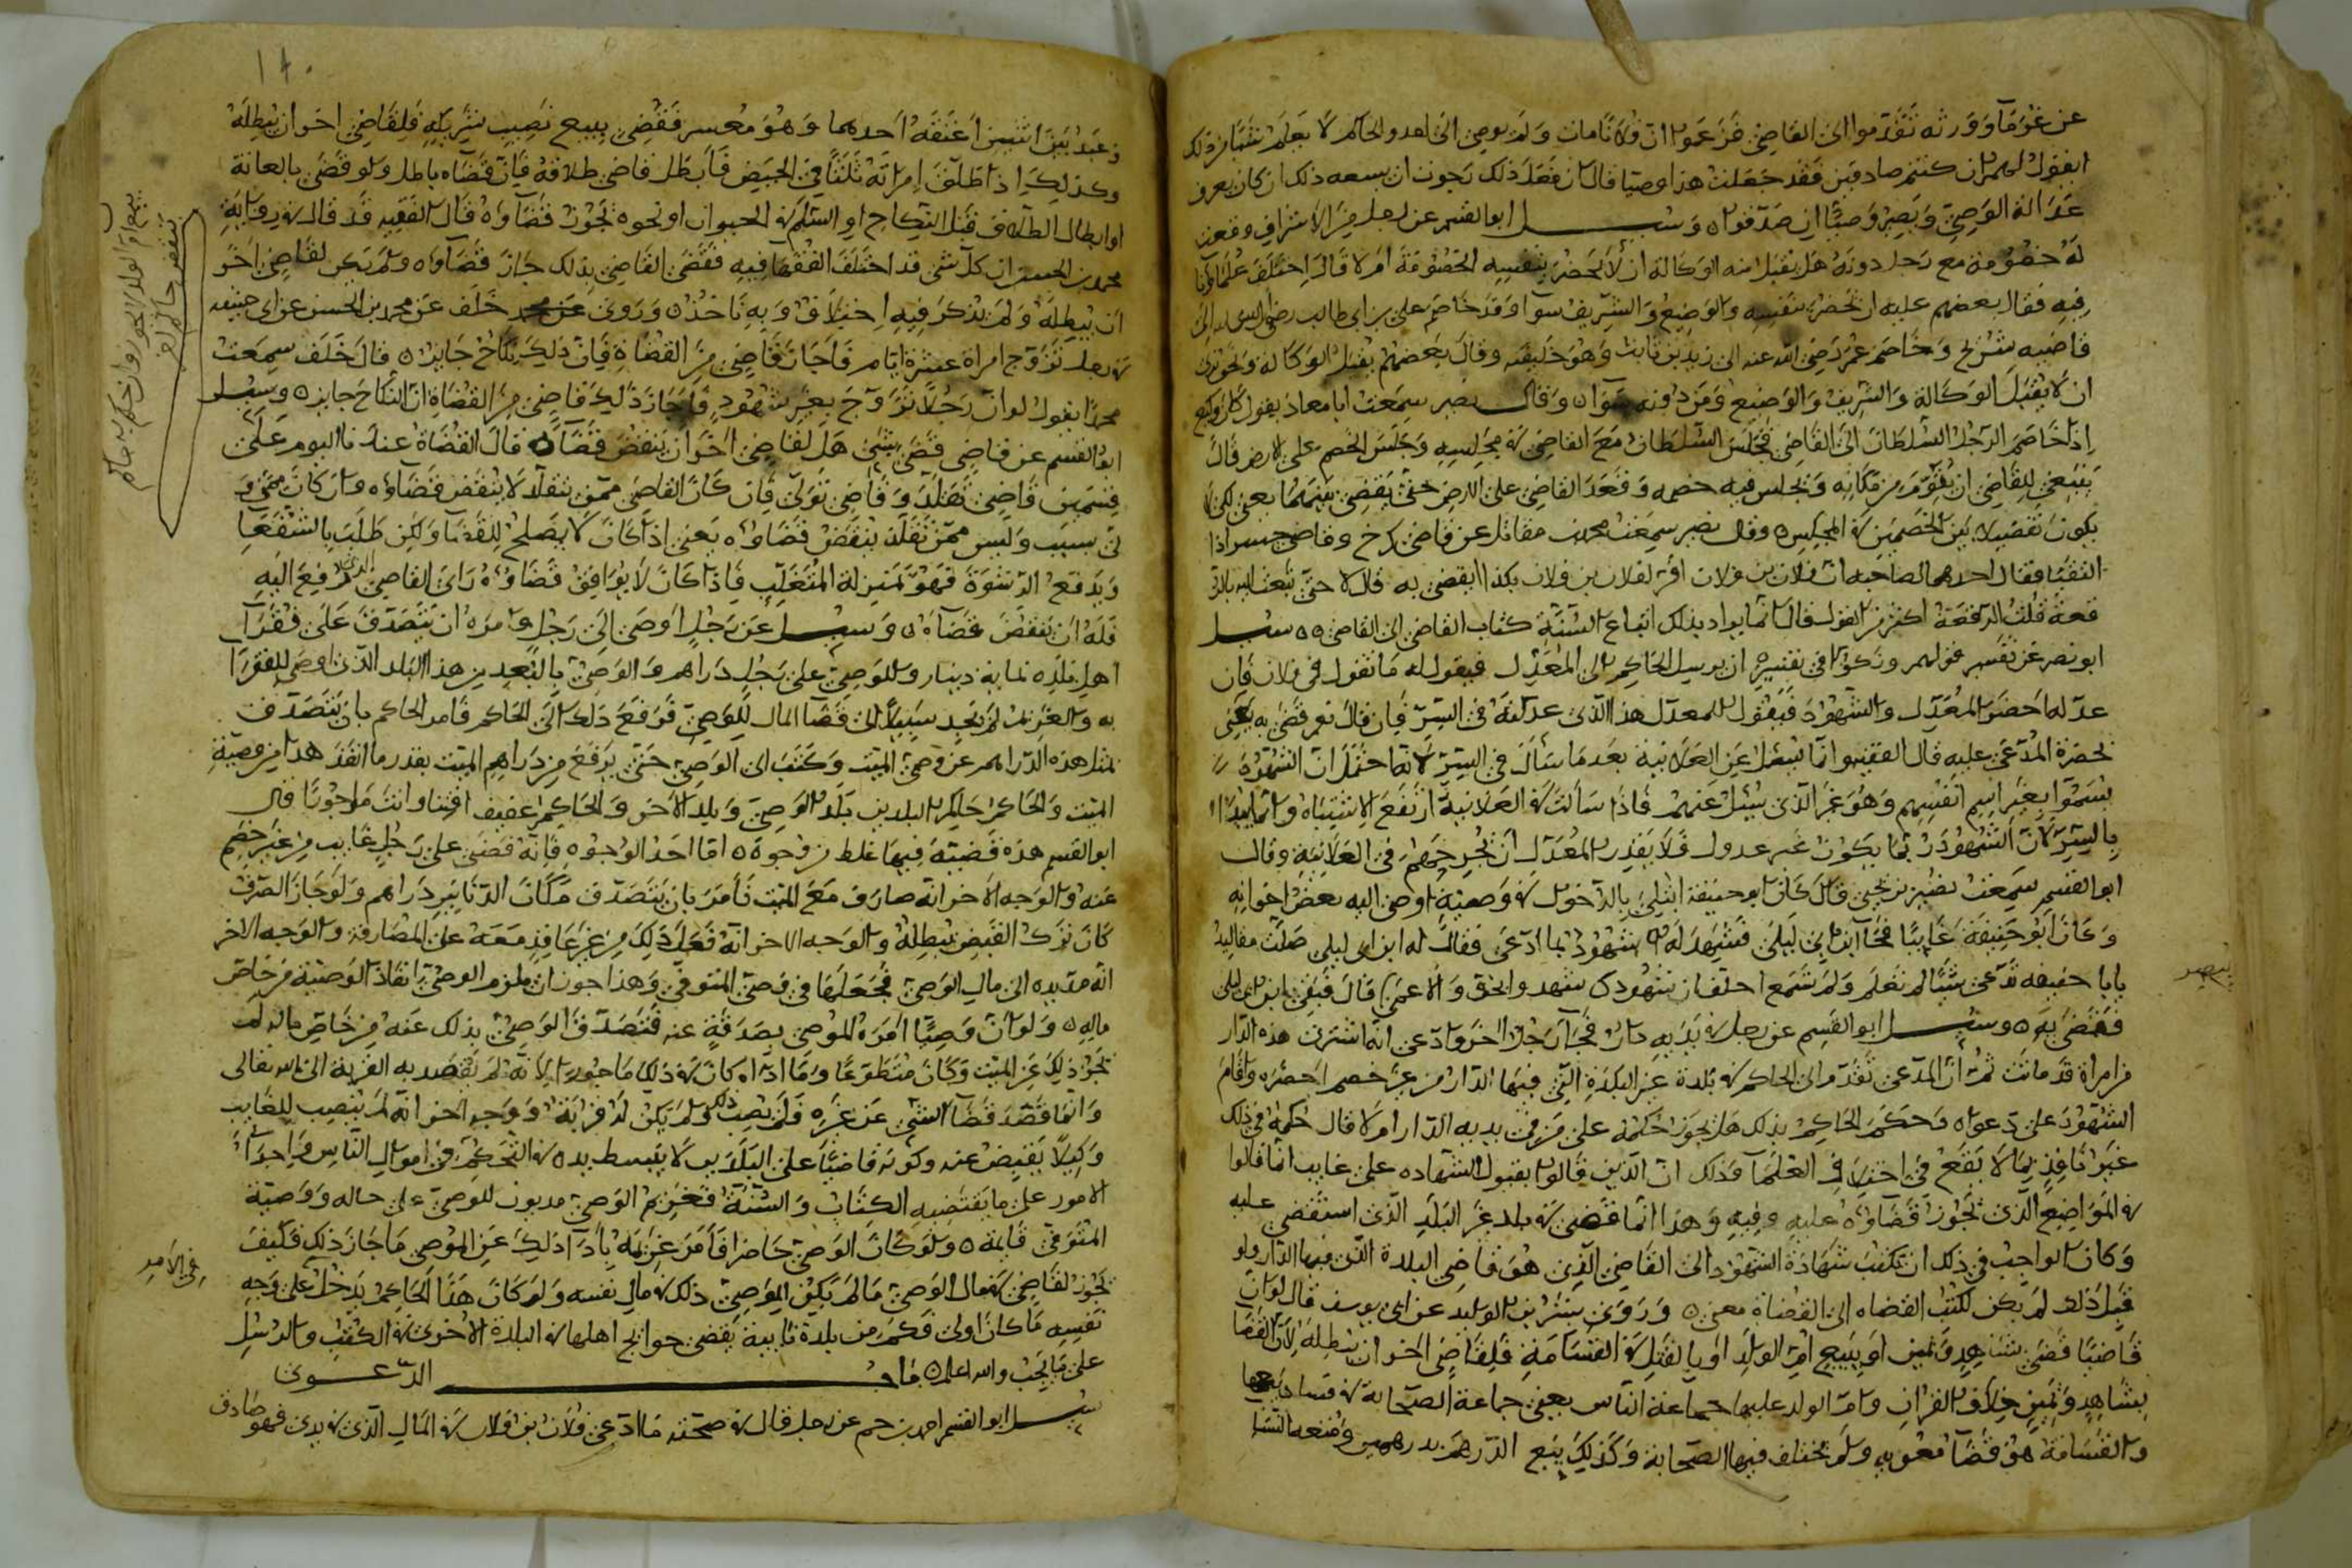 عن غرما وورثه تقدموا الى القاضي فزعموا ان فلانا مات ولم يوصي الى احد والحاكم لا يعلم شيا من ذلك
ايقول لهم ان كنتم صادقين فقد جعلت هذا وصيا قال ان فعل ذلك رجوت ان يسعه ذلك ان كان يعرف
عدالة الوصي ويصير وصيا ان صدقوا ه وسيل ابو القسم عن رجل من الاشراف وقعت
له خصومة مع رجل دونه هل يقبل منه الوكالة ان لا يحضر بنفسه الخصومة ام لا قال اختلف علماونا
فيه فقال بعضهم عليه ان يحضر بنفسه والوضيع والشريف سوا وقد خاصم علي بن ابي طالب رضي الله عنه الى
قاضيه شريح وخاصم عمر رضي الله عنه الى زيد بن ثابت وهو خليفته وقال بعضهم يقبل الوكالة ونحن نرى
ان لا يقبل الوكالة والشريف والوضيع ومن دونه سوا ه وقال نصير سمعت ابا معاذ يقول كان وكيع
اذا خاصم الرجل السلطان الى القاضي فجلس السلطان مع القاضي في مجلسه وجلس الخصم على الارض قال
ينبغي للقاضي ان يقوم من مكانه ويجلس فيه خصمه وقعد القاضي على الارض حتى يقضي بينهما يعني لكي لا
يكون تفضيلا بين الخصمين في المجلس ه وقال نصير سمعت محمد بن مقاتل عن قاضي كرخ وقاضي جسر اذا
التقيا فقال احدهما لصاحبه ان فلان بن فلان اقر لفلان بن فلان بكذا ايقضي به قال لا حتى يبعث اليه بالر
قعة قلت الرقعة اكثر من القول قال انما يراد بذلك اتباع السنة كتاب القاضي الى القاضي ه ه سيل
ابو نصر عن تفسير قولهم وذكوا في تفسيره ان يرسل الحاكم الى المعدل فيقول له ما تقول في فلان فان
عدله احضر المعدل والشهود فيقول للمعدل هذا الذي عدلته في السر فان قال نعم قضى به يعني
بحضرة المدعي عليه قال الفقيه وانما يسئل عن العلانية بعد ما سأل في السر لانه احتمل ان الشهود
يسموا بغير اسم انفسهم وهو غير الذي سئل عنهم فاذا سألت في العلانية ارتفع الاشتباه وانما يبدا
بالسر لان الشهود ربما يكون غير عدول فلا يقدر المعدل ان يجرحهم في العلانية وقال
ابو القسم سمعت نصير بن يحيى قال كان ابو حنيفة ابتلي بالدخول في وصية اوصي اليه بعض اخوانه
وكان ابو حنيفة غايبا فجا ابن ابي ليلى فشهد له شهود بما ادعى فقال له ابن ابي ليلى
يابا حنيفه تدعي شيا لم تعلم ولم تسمع احلف ان شهودك شهدوا بحق والاعمى قال فبقي ابن ابي ليلى
فقضى به ه وسيل ابو القسم عن رجل في يديه دار فجا رجل اخر وادعى انه اشترى هذه الدار
من امراة قد ماتت ثم ان المدعي تقدم الى الحاكم في بلدة غير البلدة التي فيها الدار من غير خصم احضره واقام
الشهود على دعواه وحكم الحاكم بذلك هل يجوز حكمه على من في يديه الدار ام لا قال حكمه في ذلك
غير نافذ لما لا يقع في اختلاف العلما فذلك ان الذين قالوا بقبول الشهاده على غايب انما قالوا
في المواضع الذي تجوز قضاوه عليه وفيه وهذا انما قضى في بلد غير البلد الذي استقضي عليه
وكان الواجب في ذلك ان تكتب شهادة الشهود الى القاضي الذي هو قاضي البلدة التي فيها الدار ولو
قبل ذلك لم يكن لكتب القضاه الى القضاة معنى ه وروى بشر بن الوليد عن ابي يوسف قال لو ان
قاضيا قضى بشاهد ويمين او ببيع ام الولد او بالقتل في القسامة فلقاضي اخر ان يبطله لان القضا
بشاهد ويمين خلاف القران وام الولد عليها جماعة الناس يعني جماعة الصحابة في فساد بيعها
والقسامة هو قضا معوية ولم يختلف فيها الصحابة وكذلك بيع الدرهم بدرهمين ومتعة النسا
نصير
١٤٠
وعبد بين اثنين اعتقه احدهما وهو معسر فقضى ببيع نصيب شريكه فلقاضي اخر ان يبطله
وكذلك اذا طلق امراته ثلثا في الحيض فأبطل قاضي طلاقه فان قضاه باطل ولو قضى بالعانة
او ابطال الطلاق قبل النكاح او السلم في الحيوان او نحوه تجوز قضاوه قال الفقيه قد قال في رواية
محمد بن الحسن ان كل شي قد اختلف الفقها فيه فقضى القاضي بذلك جاز قضاوه ولم يكن لقاضي اخر
ان يبطله ولم يذكر فيه اختلاف وبه ناخذ ه وروى خلف عن محمد بن الحسن عن ابي حنيفه
في رجل تزوج امراة عشرة ايام فاجاز قاضي من القضاة فان ذلك نكاح جايز ه قال خلف سمعت
محمدا يقول لو ان رجلا تزوج بغير شهود فاجاز ذلك قاضي من القضاة ان النكاح جايز ه وسيل
ابو القسم عن قاضي قضى بشي هل لقاضي اخر ان ينقض قضاه قال القضاة عندنا اليوم على
قسمين قاضي تقلد وقاضي تولى فان كان القاضي ممن تقلد لا ينقض قضاوه وان كان ممن و
لي بسبب وليس ممن تقلد ينقض قضاوه يعني اذا كان لا يصلح للقضا ولكن طلب بالشفعا
ويدفع الرشوة فهو بمنزلة المتغلب فاذا كان لا يوافق قضاوه راى القاضي الذي رفع اليه
فله ان ينقض قضاه ه وسيل عن رجل اوصى الى رجل وامره ان يتصدق على فقرا
اهل بلده بماية دينار وللوصي على رجل دراهم والوصي بالبعد من هذا البلد الذي اوصى للفقرا
به والغريم لم يجد سبيلا الى قضا المال للوصي فرفع ذلك الى الحاكم فامر الحاكم بان يتصدق
بمثل هذه الدراهم عن وصي الميت وكتب الى الوصي حتى يرفع من دراهم الميت بقدر ما انفذ هذا من وصية
الميت والحاكم حاكم البلدين بلد الوصي وبلد الاخر والحاكم عفيف افتنا وانت ماجورا قال
ابو القسم هذه قضية فيها غلط من وجوه ه اما احد الوجوه فانه قضى على رجل غايب من غير خصم
عنه والوجه الاخر انه صارف مع الميت فأمر بان يتصدق مكان الدنانير دراهم ولو جاز الصرف
كان ترك القبض يبطله والوجه الاخر انه فعل ذلك من غير عاقد معه على المصارفة والوجه الاخر
انه مد يده الى مال الوصي فجعلها في وصي المتوفي وهذا جور ان يلزم الوصي انفاذ الوصية من خاص
ماله ه ولو ان وصيا امره الموصي بصدقة عنه فتصدق الوصي بذلك عنه من خاص ماله لم
تجز ذلك عن الميت وكان متطوعا وما اداه كان في ذلك ماجورا لانه لم يقصد به القربة الى الله تعالى
وانما قصد قضا الشي عن غيره فلم يصب ذلك ولم يكن له قرابة ووجه اخر انه لم ينصب للغايب
وكيلا يقبض عنه وكونه قاضيا على البلدين لا يبسط يده في التحكم في اموال الناس من اجرا
الامور على ما يقتضيه الكتاب والسنة فغريم الوصي مديون للوصي على حاله ووصية
المتوفي قايمة ه ولو كان الوصي حاضرا فأمر غريمه بأدا ذلك عن الموصي ما جاز ذلك فكيف
تجوز لقاضي في مال الوصي ما لم يكن للوصي ذلك في مال نفسه ولو كان هذا الحاكم يدخل على وجه
نفسه ما كان اولى فكم من بلدة نايبة يقضي حوايج اهلها في البلدة الاخرى في الكتب والرسل
على ما يجب والله اعلم ه باب الدعوى
سيل ابو القسم احمد بن حم عن رجل قال في صحته ما ادعى فلان بن فلان في المال الذي في يدي فهو صادق
بيع ام الولد لا يجوز وان حكم به حاكم
في الامر